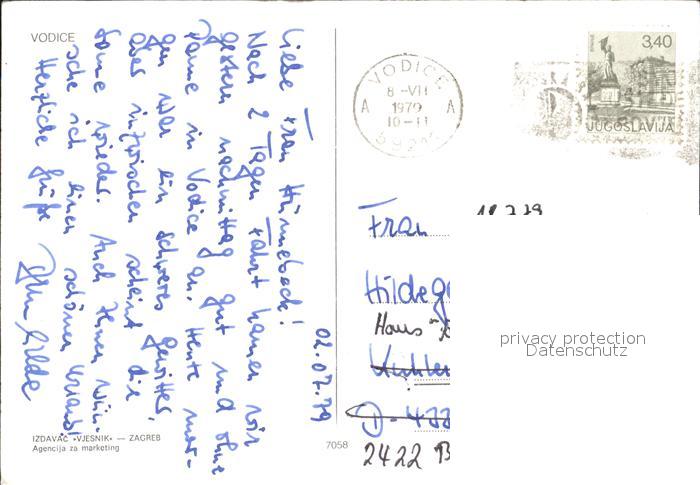 VODICE
02.07.79
Liebe Frau Hünnebeck!
Nach 2 Tagen Fahrt kamen wir
gestern nachmittag gut und ohne
Panne in Vodice an. Heute mor-
gen war ein schweres Gewitter,
aber inzwischen scheint die
Sonne wieder. Auch Ihnen wün-
sche ich einen schönen Urlaub!
Herzliche Grüße
IZDAVAČ »VJESNIK« — ZAGREB
Agencija za marketing
7058
VODICE
8 -VII
1979
10-11
A A
3,40
JUGOSLAVIJA
Frau
Hildeg
Haus
2422 B
privacy protection
Datenschutz